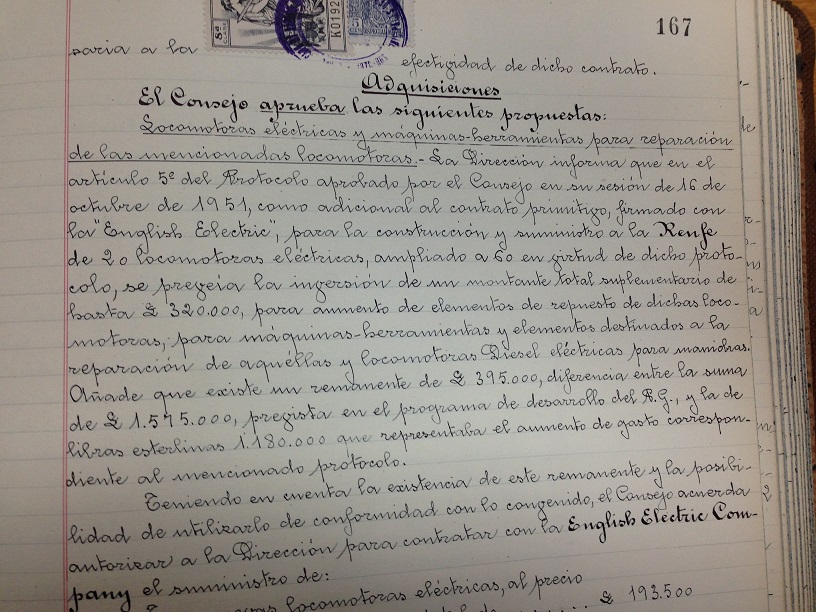 167
saria a la
efectividad de dicho contrato.
Adquisiciones
El Consejo aprueba las siguientes propuestas:
Locomotoras eléctricas y máquinas-herramientas para reparación
de las mencionadas locomotoras.- La Dirección informa que en el
artículo 5º del Protocolo aprobado por el Consejo en su sesión de 16 de
octubre de 1951, como adicional al contrato primitivo, firmado con
la "English Electric", para la construcción y suministro a la Renfe
de 20 locomotoras eléctricas, ampliado a 60 en virtud de dicho proto-
colo, se preveía la inversión de un montante total suplementario de
hasta £ 320.000, para aumento de elementos de repuesto de dichas loco-
motoras; para máquinas-herramientas y elementos destinados a la
reparación de aquéllas y locomotoras Diesel eléctricas para maniobras.
Añade que existe un remanente de £ 395.000, diferencia entre la suma
de £ 1.575.000, prevista en el programa de desarrollo del A.G., y la de
libras esterlinas 1.180.000 que representaba el aumento de gasto correspon-
diente al mencionado protocolo.
Teniendo en cuenta la existencia de este remanente y la posibi-
lidad de utilizarlo de conformidad con lo convenido, el Consejo acuerda
autorizar a la Dirección para contratar con la English Electric Com-
pany el suministro de:
locomotoras eléctricas, al precio
£ 193.500